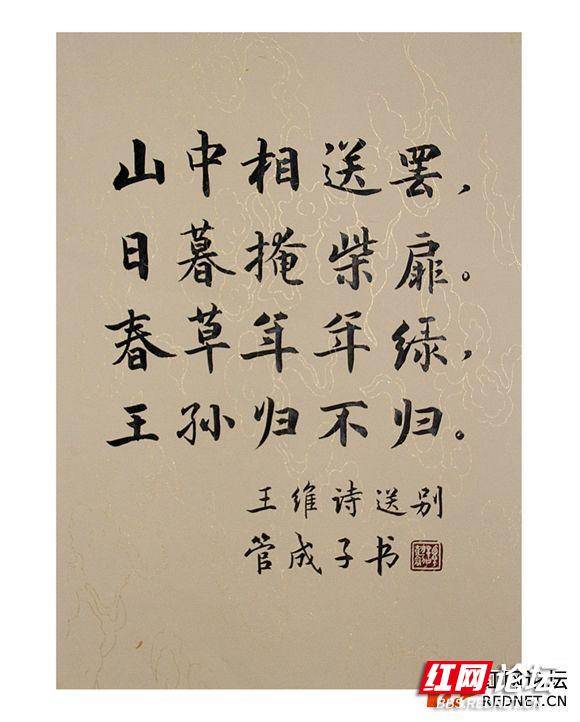 山中相送罢，
日暮掩柴扉。
春草年年绿，
王孙归不归。
王维诗送别
管成子书
红网论坛
BBS.REDNET.CN
论坛
REDNET.CN